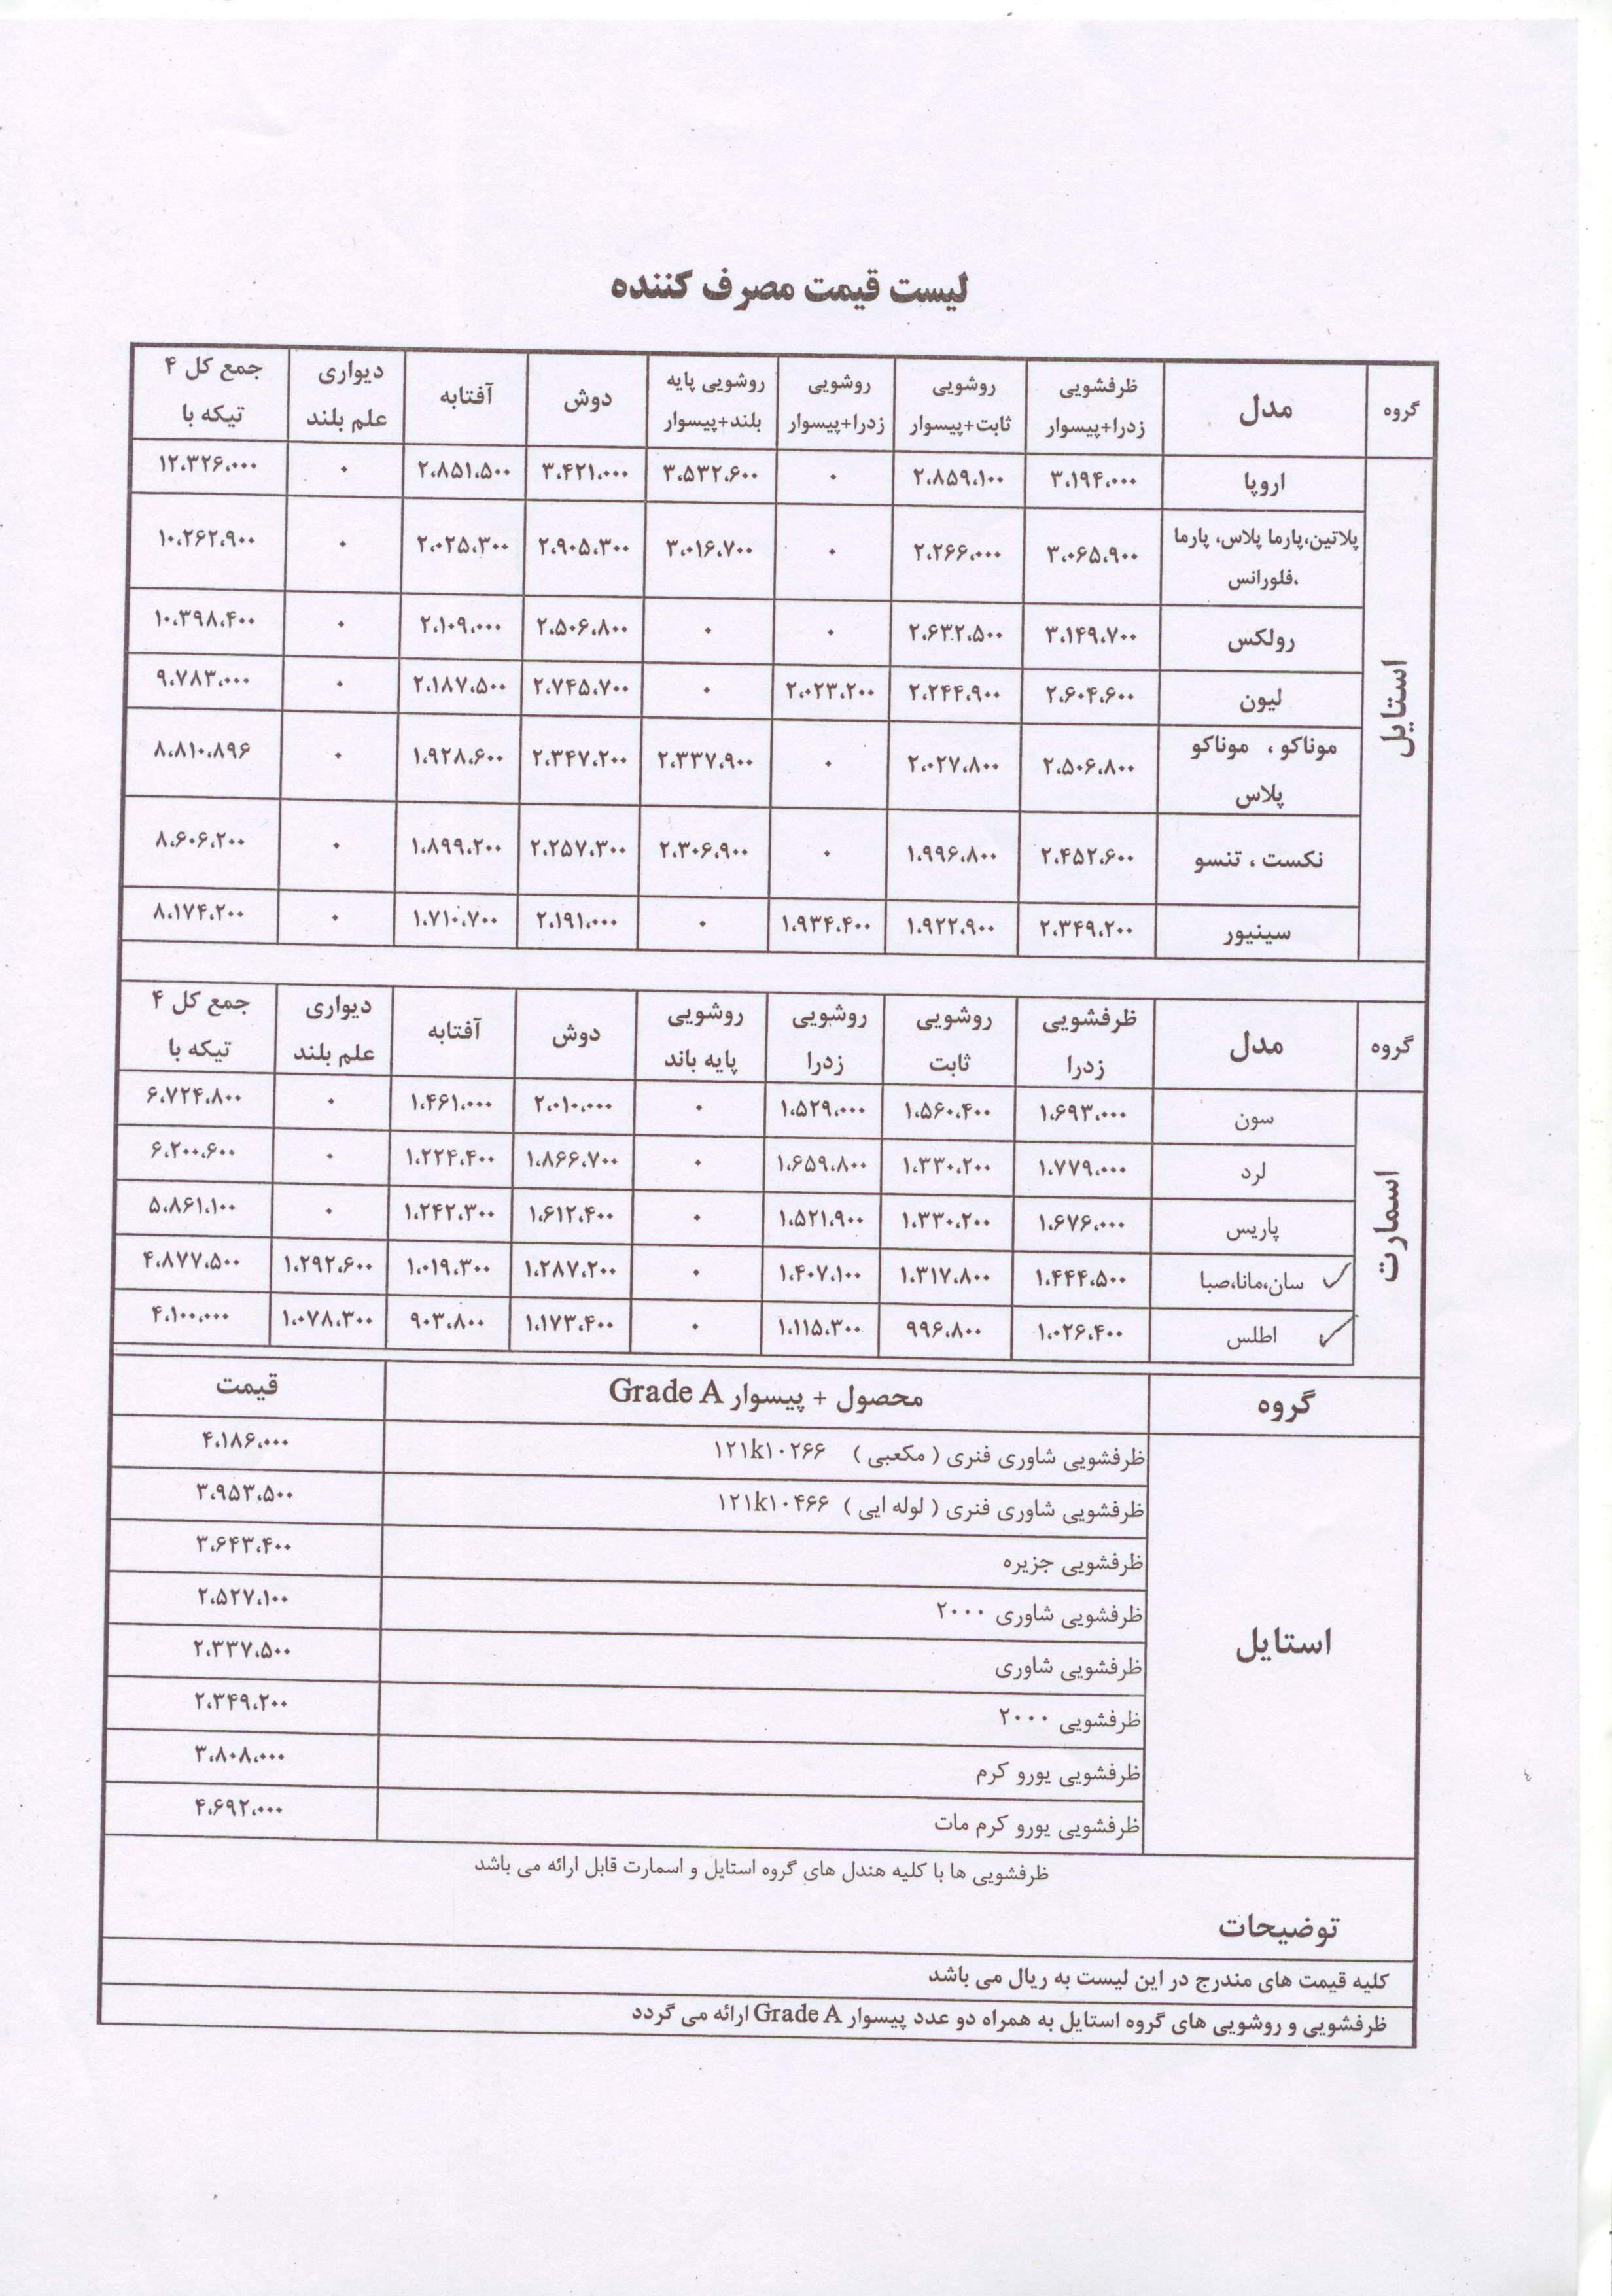 لیست قیمت مصرف کننده
گروه مدل ظرفشویی زدرا+پیسوار روشویی ثابت+پیسوار روشویی زدرا+پیسوار روشویی پایه بلند+پیسوار دوش آفتابه دیواری علم بلند جمع کل ۴ تیکه با
استایل
اروپا ۳،۱۹۴،۰۰۰ ۲،۸۵۹،۱۰۰ ۰ ۳،۵۳۲،۶۰۰ ۳،۴۲۱،۰۰۰ ۲،۸۵۱،۵۰۰ ۰ ۱۲،۳۲۶،۰۰۰
پلاتین،پارما پلاس، پارما ،فلورانس ۳،۰۶۵،۹۰۰ ۲،۲۶۶،۰۰۰ ۰ ۳،۰۱۶،۷۰۰ ۲،۹۰۵،۳۰۰ ۲،۰۲۵،۳۰۰ ۰ ۱۰،۲۶۲،۹۰۰
رولکس ۳،۱۴۹،۷۰۰ ۲،۶۳۲،۵۰۰ ۰ ۰ ۲،۵۰۶،۸۰۰ ۲،۱۰۹،۰۰۰ ۰ ۱۰،۳۹۸،۴۰۰
لیون ۲،۶۰۴،۶۰۰ ۲،۲۴۴،۹۰۰ ۲،۰۲۳،۲۰۰ ۰ ۲،۷۴۵،۷۰۰ ۲،۱۸۷،۵۰۰ ۰ ۹،۷۸۳،۰۰۰
موناکو ، موناکو پلاس ۲،۵۰۶،۸۰۰ ۲،۰۲۷،۸۰۰ ۰ ۲،۳۳۷،۹۰۰ ۲،۳۴۷،۲۰۰ ۱،۹۲۸،۶۰۰ ۰ ۸،۸۱۰،۸۹۶
نکست ، تنسو ۲،۴۵۲،۶۰۰ ۱،۹۹۶،۸۰۰ ۰ ۲،۳۰۶،۹۰۰ ۲،۲۵۷،۳۰۰ ۱،۸۹۹،۲۰۰ ۰ ۸،۶۰۶،۲۰۰
سینیور ۲،۳۴۹،۲۰۰ ۱،۹۲۲،۹۰۰ ۱،۹۳۴،۴۰۰ ۰ ۲،۱۹۱،۰۰۰ ۱،۷۱۰،۷۰۰ ۰ ۸،۱۷۴،۲۰۰
گروه مدل ظرفشویی زدرا روشویی ثابت روشویی زدرا روشویی پایه باند دوش آفتابه دیواری علم بلند جمع کل ۴ تیکه با
اسمارت
سون ۱،۶۹۳،۰۰۰ ۱،۵۶۰،۴۰۰ ۱،۵۲۹،۰۰۰ ۰ ۲،۰۱۰،۰۰۰ ۱،۴۶۱،۰۰۰ ۰ ۶،۷۲۴،۸۰۰
لرد ۱،۷۷۹،۰۰۰ ۱،۳۳۰،۲۰۰ ۱،۶۵۹،۸۰۰ ۰ ۱،۸۶۶،۷۰۰ ۱،۲۲۴،۴۰۰ ۰ ۶،۲۰۰،۶۰۰
پاریس ۱،۶۷۶،۰۰۰ ۱،۳۳۰،۲۰۰ ۱،۵۲۱،۹۰۰ ۰ ۱،۶۱۲،۴۰۰ ۱،۲۴۲،۳۰۰ ۰ ۵،۸۶۱،۱۰۰
سان،مانا،صبا ۱،۴۴۴،۵۰۰ ۱،۳۱۷،۸۰۰ ۱،۴۰۷،۱۰۰ ۰ ۱،۲۸۷،۲۰۰ ۱،۰۱۹،۳۰۰ ۱،۲۹۲،۶۰۰ ۴،۸۷۷،۵۰۰
اطلس ۱،۰۲۶،۴۰۰ ۹۹۶،۸۰۰ ۱،۱۱۵،۳۰۰ ۰ ۱،۱۷۳،۴۰۰ ۹۰۳،۸۰۰ ۱،۰۷۸،۳۰۰ ۴،۱۰۰،۰۰۰
گروه محصول + پیسوار Grade A قیمت
استایل
ظرفشویی شاوری فنری ( مکعبی ) ۱۲۱k۱۰۲۶۶ ۴،۱۸۶،۰۰۰
ظرفشویی شاوری فنری ( لوله ایی ) ۱۲۱k۱۰۴۶۶ ۳،۹۵۳،۵۰۰
ظرفشویی جزیره ۳،۶۴۳،۴۰۰
ظرفشویی شاوری ۲۰۰۰ ۲،۵۲۷،۱۰۰
ظرفشویی شاوری ۲،۳۳۷،۵۰۰
ظرفشویی ۲۰۰۰ ۲،۳۴۹،۲۰۰
ظرفشویی یورو کرم ۳،۸۰۸،۰۰۰
ظرفشویی یورو کرم مات ۴،۶۹۲،۰۰۰
ظرفشویی ها با کلیه هندل های گروه استایل و اسمارت قابل ارائه می باشد
توضیحات
کلیه قیمت های مندرج در این لیست به ریال می باشد
ظرفشویی و روشویی های گروه استایل به همراه دو عدد پیسوار Grade A ارائه می گردد